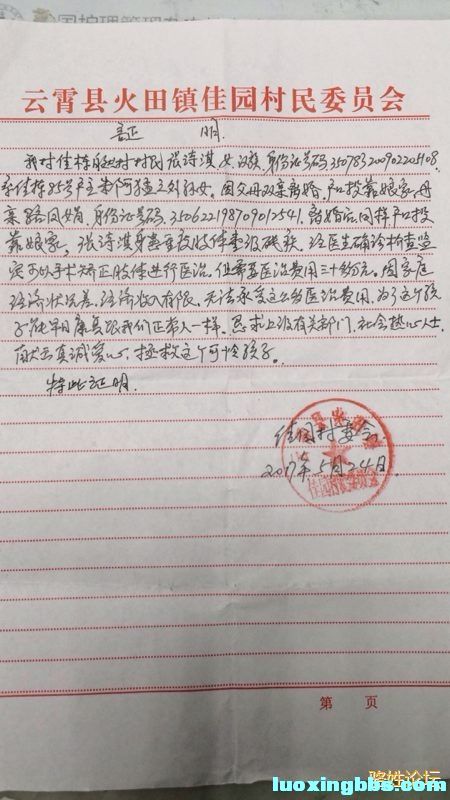 云霄县火田镇佳园村民委员会
证 明
我村佳栋自然村村民张诗淇,女,汉族,身份证号码,350783200902205108,
系佳栋85号户主 之外孙女。因父母双亲离婚,户口投靠娘家,母
亲骆凤娟,身份证号码,350622198709012541,离婚后同样户口投
靠娘家。张诗淇身患重度肢体叁级残疾,经医生确诊析查鉴
实可以手术矫正肢体进行医治,但需要医治费用三十多万元。因家庭
经济状况差,经济收入有限,无法承受这么多医治费用,为了这个孩
子能早日康复跟我们正常人一样,恳求上级有关部门,社会热心人士,
献出真诚爱心,拯救这个可怜孩子。
特此证明。
佳园村委会
2017年5月24日
第 页
骆姓论坛
luoxingbbs.com